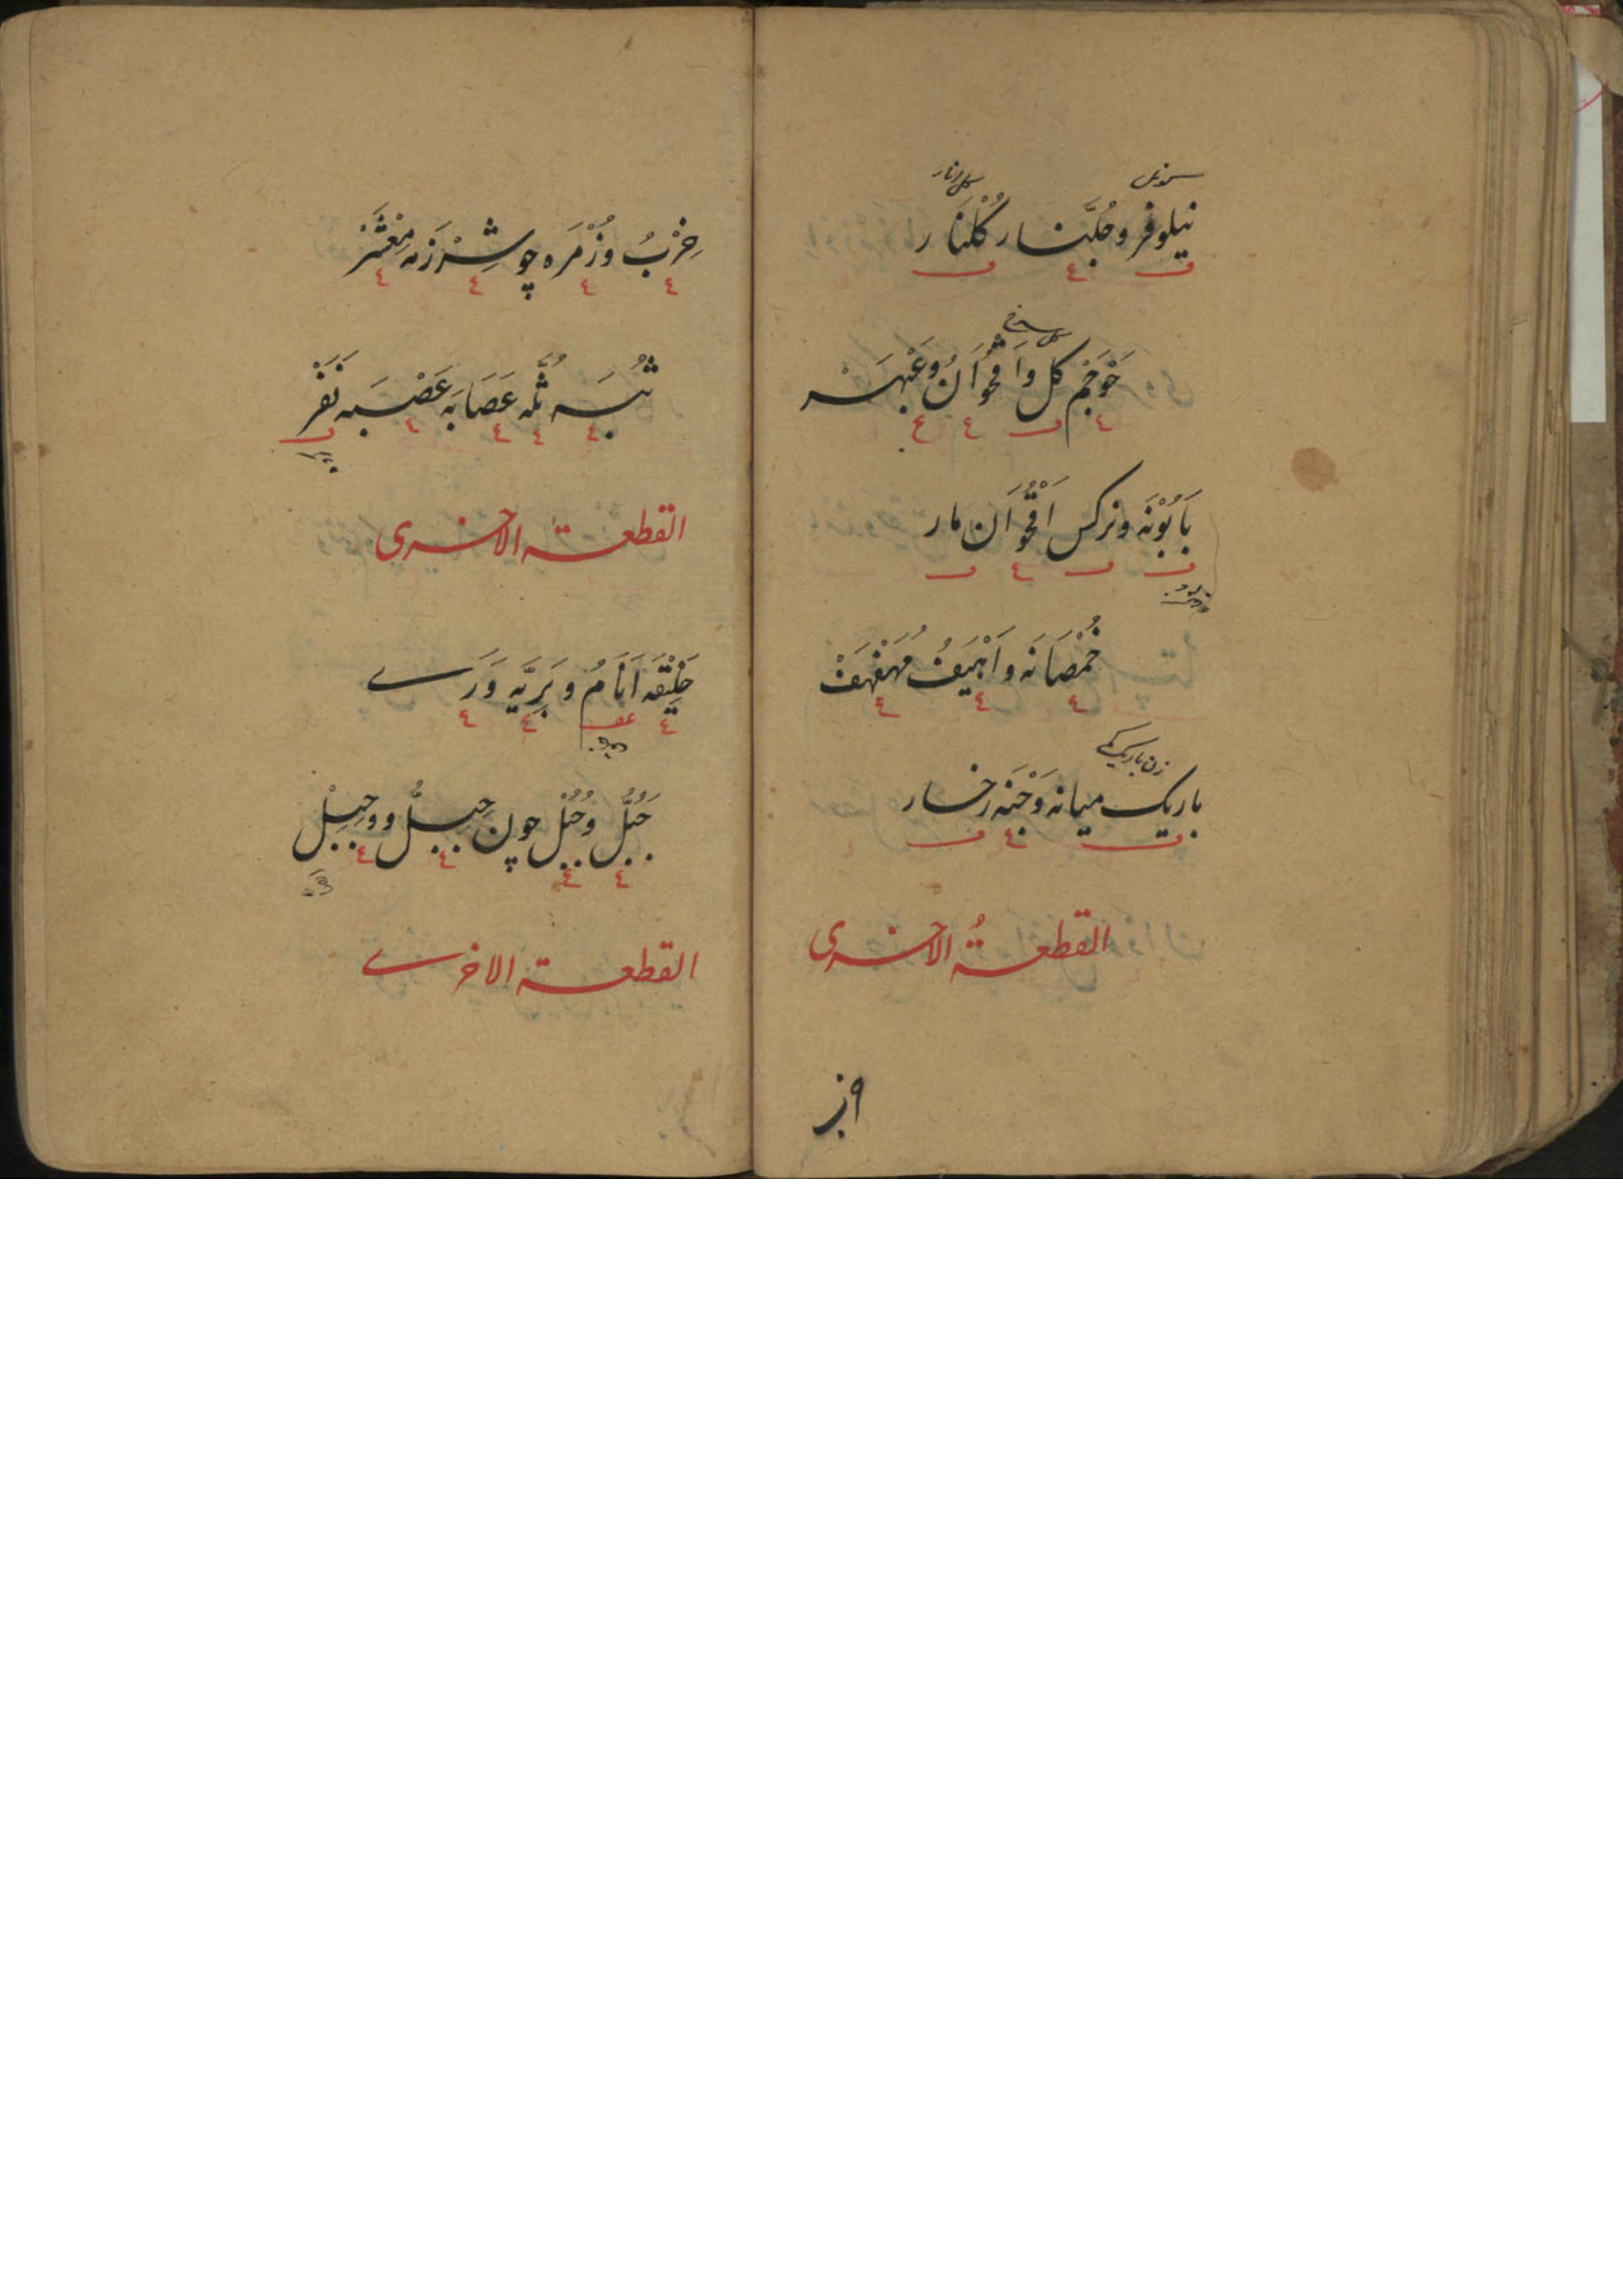 نیلوفر و جُلَّنار کُلْنَار
کل انار
حَوْجَم کل و اَقْحُوَانُ و عَبْهَر
بَابُوْنَه و نرکس اُقْحُوَان مار
خُمْصَانَه و اَهْیَفُ مُهَفْهَفْ
زن باریک
باریک میانه وَجْنَه رخسار
القطعةُ الاخری
حِزْبُ و زُمْرَه چو شِرْزَمَه مَعْشَرْ
ثُبَه ثُلَّه عَصَابَه عَصْبَه نَفَرْ
القطعة الاخری
خَلِیْقَه اَنَامُ و بَرِیَّه وَرَے
جُبُلُّ و جُبُلْ چون جِبِلُّ و و جِبِلْ
القطعة الاخرے